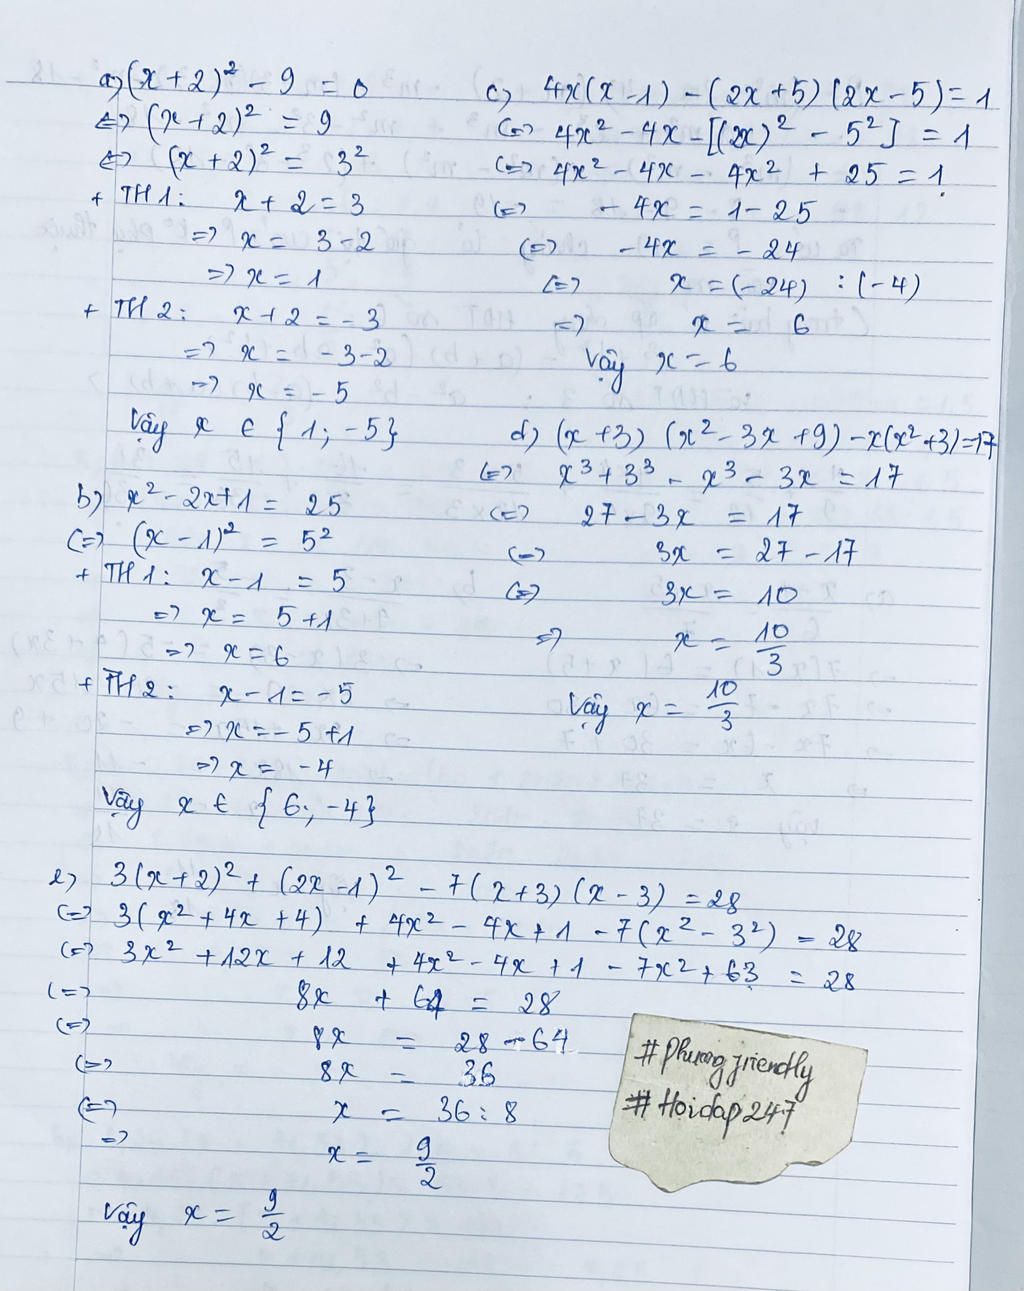 a) (x+2)² - 9 = 0
<=> (x+2)² = 9
<=> (x+2)² = 3²
+ TH1: x + 2 = 3
=> x = 3 - 2
=> x = 1
+ TH2: x + 2 = -3
=> x = -3-2
=> x = -5
Vậy x ∈ {1; -5}
b) x² - 2x + 1 = 25
<=> (x - 1)² = 5²
+ TH1: x - 1 = 5
=> x = 5 + 1
=> x = 6
+ TH2: x - 1 = -5
=> x = -5 + 1
=> x = -4
Vậy x ∈ {6; -4}
c) 4x(x-1) - (2x+5)(2x-5) = 1
<=> 4x² - 4x - [(2x)² - 5²] = 1
<=> 4x² - 4x - 4x² + 25 = 1
<=> - 4x = 1 - 25
<=> -4x = -24
<=> x = (-24) : (-4)
=> x = 6
Vậy x = 6
d) (x+3) (x² - 3x + 9) - x(x²+3) = 17
<=> x³ + 3³ - x³ - 3x = 17
<=> 27 - 3x = 17
<=> 3x = 27 - 17
<=> 3x = 10
=> x = 10/3
Vậy x = 10/3
e) 3(x+2)² + (2x-1)² - 7(x+3)(x-3) = 28
<=> 3(x² + 4x + 4) + 4x² - 4x + 1 - 7(x² - 3²) = 28
<=> 3x² + 12x + 12 + 4x² - 4x + 1 - 7x² + 63 = 28
<=> 8x + 64 = 28
<=> 8x = 28 - 64
<=> 8x = 36
<=> x = 36 : 8
=> x = 9/2
Vậy x = 9/2
# Phuong friendly
# Hoidap247